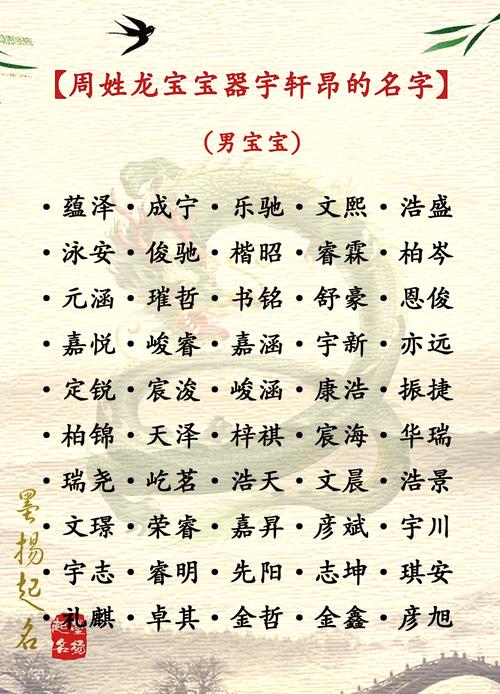 【周姓龙宝宝器宇轩昂的名字】
(男宝宝)
·蕴泽·成宁·乐驰·文熙·浩盛
·泳安·俊驰·楷昭·睿霖·柏岑
·元涵·璀哲·书铭·舒豪·恩俊
·嘉悦·峻睿·嘉涵·宇新·亦远
·定锐·宸浚·峻涵·康浩·振捷
·柏锦·天泽·梓祺·宸海·华瑞
·瑞尧·屹茗·浩天·文晨·浩景
·文璟·荣睿·嘉昇·彦斌·宇川
·宇志·睿明·先阳·志坤·琪安
·礼麒·卓其·金哲·金鑫·彦旭
墨扬起名
墨扬起名